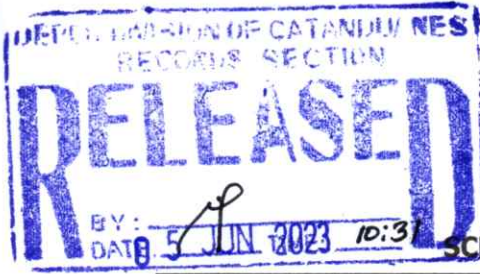 DEPED DIVISION OF CATANDUANES
RECORDS SECTION
RELEASED
BY:
DATE 5 JUN 2023 10:31